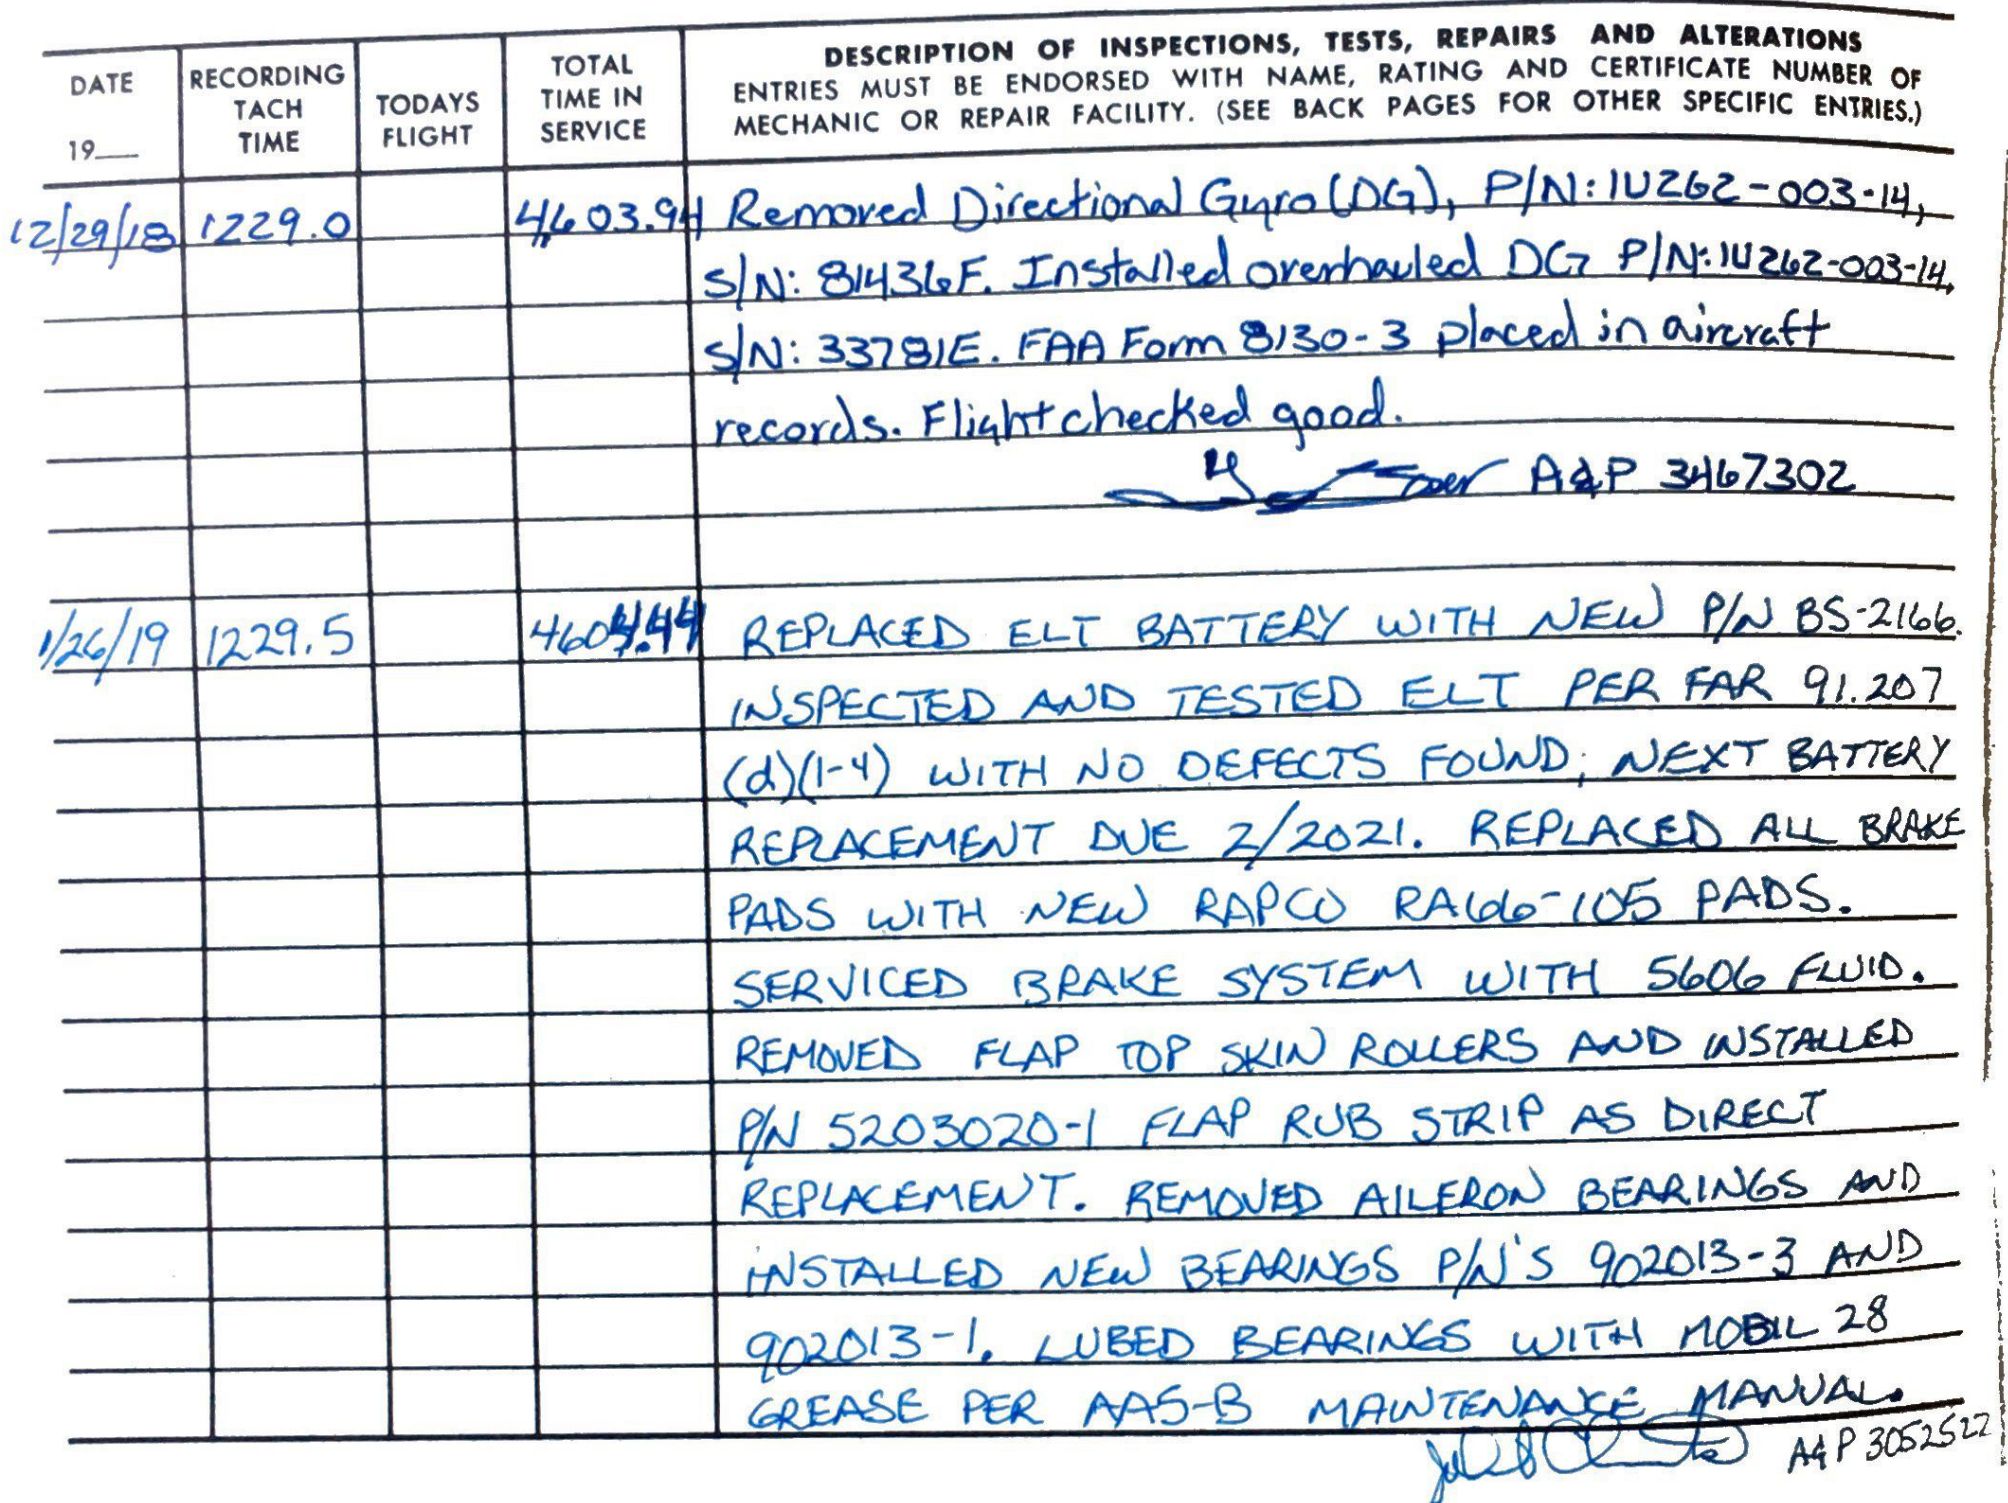 DATE
19
RECORDING
TACH
TIME
TODAYS
FLIGHT
TOTAL
TIME IN
SERVICE
DESCRIPTION OF INSPECTIONS, TESTS, REPAIRS AND ALTERATIONS
ENTRIES MUST BE ENDORSED WITH NAME, RATING AND CERTIFICATE NUMBER OF
MECHANIC OR REPAIR FACILITY. (SEE BACK PAGES FOR OTHER SPECIFIC ENTRIES.)
12/29/18 1229.0 4603.94 Removed Directional Gyro (DG), P/N: 1U262-003-14,
S/N: 81436F. Installed overhauled DG P/N: 1U262-003-14,
S/N: 33781E. FAA Form 8130-3 placed in aircraft
records. Flight checked good.
A&P 3467302
1/26/19 1229.5 4604.44 REPLACED ELT BATTERY WITH NEW P/N BS-2166.
INSPECTED AND TESTED ELT PER FAR 91.207
(d)(1-4) WITH NO DEFECTS FOUND; NEXT BATTERY
REPLACEMENT DUE 2/2021. REPLACED ALL BRAKE
PADS WITH NEW RAPCO RA66-105 PADS.
SERVICED BRAKE SYSTEM WITH 5606 FLUID.
REMOVED FLAP TOP SKIN ROLLERS AND INSTALLED
P/N 5203020-1 FLAP RUB STRIP AS DIRECT
REPLACEMENT. REMOVED AILERON BEARINGS AND
INSTALLED NEW BEARINGS P/N'S 902013-3 AND
902013-1. LUBED BEARINGS WITH MOBIL 28
GREASE PER AA5-B MAINTENANCE MANUAL.
A&P 3052522